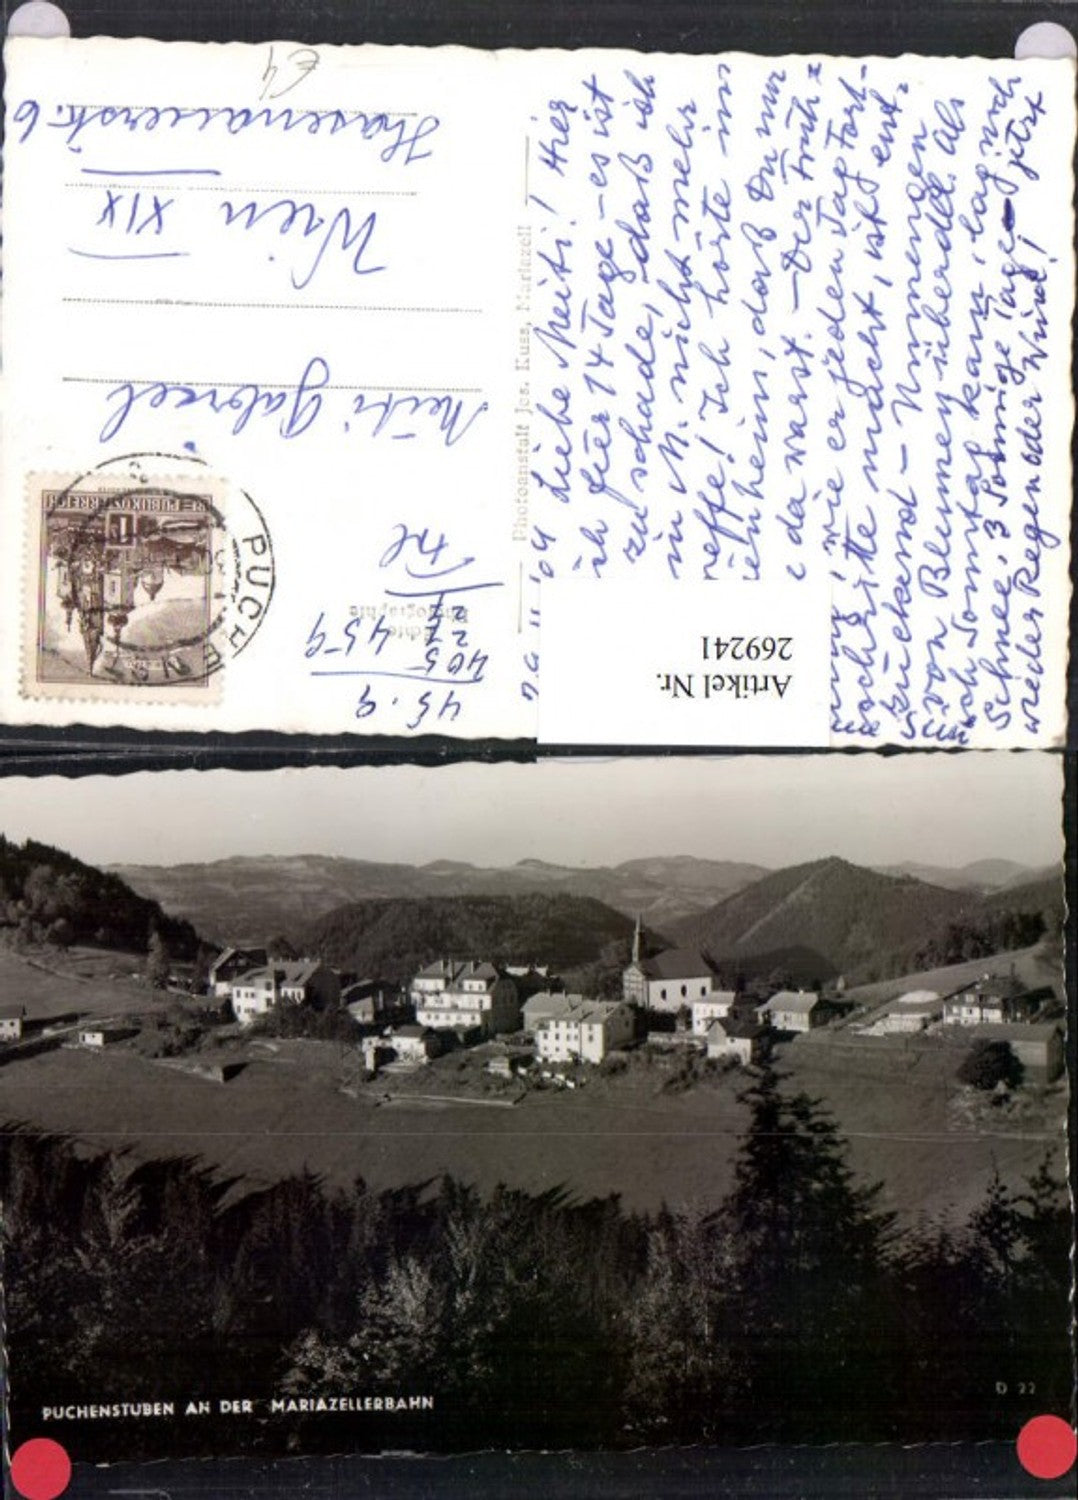 Liebe Meiti! Hier
ich für 14 Tage – es ist
zu schade, daß ich
in M. nicht mehr
treffe! Ich hörte im
, daß Du nur
da warst. – Der Früh-
, wie er jeden Tag Fort-
schritte macht, ist ent-
zückend –
von Blumen übersät. Als
ich Sonntag kam, lag noch
Schnee, 3 sonnige Tage – jetzt
wieder Regen oder Wind!
Photoanstalt Jos. Kuss, Mariazell
Echte
Photographie
45.9
405
459
Frl
Meiti Gabriel
Wien XIX
Hasenauerstr. 6
€4
REPUBLIK ÖSTERREICH
1
PUCHENST
Artikel Nr.
269241
PUCHENSTUBEN AN DER MARIAZELLERBAHN
D 22